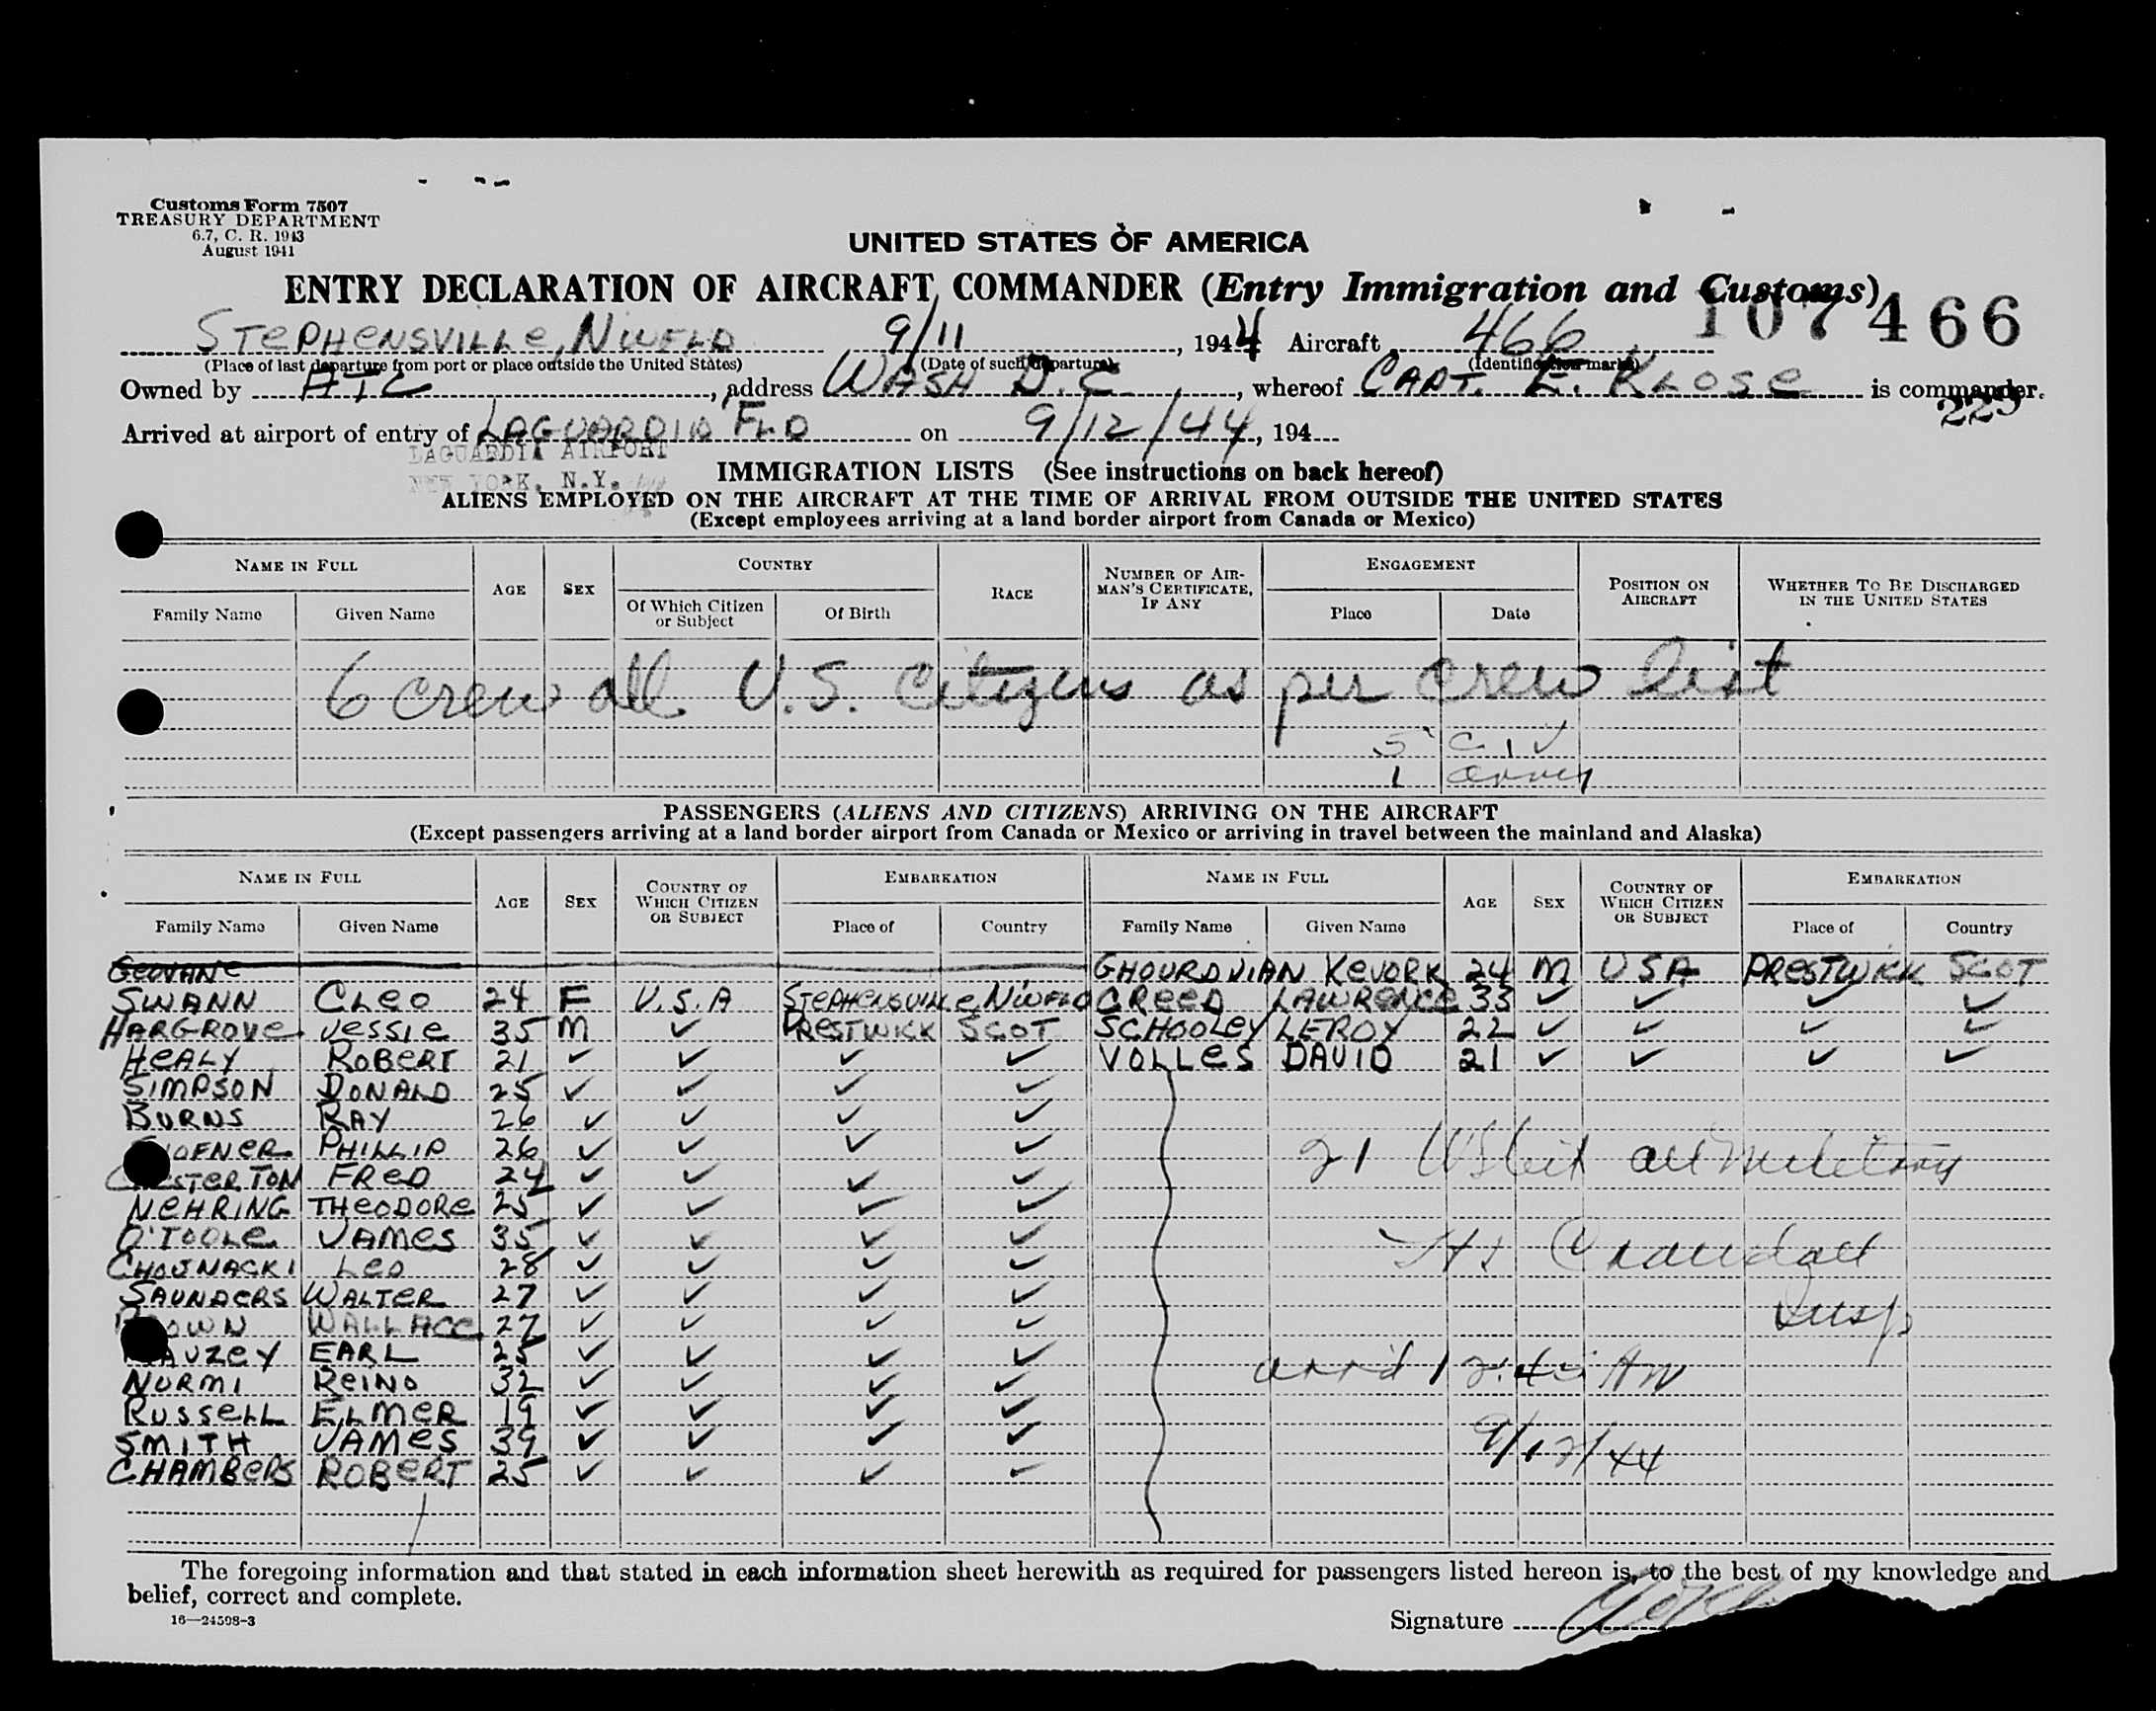 Customs Form 7507
TREASURY DEPARTMENT
6.7, C. R. 1943
August 1941
UNITED STATES OF AMERICA
ENTRY DECLARATION OF AIRCRAFT COMMANDER (Entry Immigration and Customs)
107466
STEPHENSVILLE, NWFLD 9/11, 1944 Aircraft 466
(Place of last departure from port or place outside the United States) (Date of such departure) (Identification marks)
Owned by ATC, address WASH D.C., whereof CAPT. E. KLOSE is commander.
229
Arrived at airport of entry of LAGUARDIA FLD on 9/12/44, 194
LAGUARDIA AIRPORT
NEW YORK, N.Y.
IMMIGRATION LISTS (See instructions on back hereof)
ALIENS EMPLOYED ON THE AIRCRAFT AT THE TIME OF ARRIVAL FROM OUTSIDE THE UNITED STATES
(Except employees arriving at a land border airport from Canada or Mexico)
NAME IN FULL AGE SEX COUNTRY RACE NUMBER OF AIRMAN'S CERTIFICATE, IF ANY ENGAGEMENT POSITION ON AIRCRAFT WHETHER TO BE DISCHARGED IN THE UNITED STATES
Family Name Given Name Of Which Citizen or Subject Of Birth Place Date
6 crew all U.S. Citizens as per crew list
5 CIV
1 army
PASSENGERS (ALIENS AND CITIZENS) ARRIVING ON THE AIRCRAFT
(Except passengers arriving at a land border airport from Canada or Mexico or arriving in travel between the mainland and Alaska)
NAME IN FULL AGE SEX COUNTRY OF WHICH CITIZEN OR SUBJECT EMBARKATION NAME IN FULL AGE SEX COUNTRY OF WHICH CITIZEN OR SUBJECT EMBARKATION
Family Name Given Name Place of Country Family Name Given Name Place of Country
GHOURDVIAN KEVORK 24 M USA PRESTWICK SCOT
SWANN CLEO 24 F U.S.A STEPHENSVILLE NWFLD CREED LAWRENCE 33 ✓ ✓ ✓ ✓
HARGROVE JESSIE 35 M ✓ PRESTWICK SCOT SCHOOLEY LEROY 22 ✓ ✓ ✓ ✓
HEALY ROBERT 21 ✓ ✓ ✓ ✓ VOLLES DAVID 21 ✓ ✓ ✓ ✓
SIMPSON DONALD 25 ✓ ✓ ✓ ✓
BURNS RAY 26 ✓ ✓ ✓ ✓
OFNER PHILLIP 26 ✓ ✓ ✓ ✓
21 US Cit all Military
CHESTERTON FRED 24 ✓ ✓ ✓ ✓
NEHRING THEODORE 25 ✓ ✓ ✓ ✓
O'TOOLE JAMES 35 ✓ ✓ ✓ ✓
CHOJNACKI LEO 28 ✓ ✓ ✓ ✓
Crandall
SAUNDERS WALTER 27 ✓ ✓ ✓ ✓
Insp
BROWN WALLACE 27 ✓ ✓ ✓ ✓
AUZEY EARL 25 ✓ ✓ ✓ ✓
arr'd 12:45 AM
NURMI REINO 32 ✓ ✓ ✓ ✓
RUSSELL ELMER 19 ✓ ✓ ✓ ✓
SMITH JAMES 39 ✓ ✓ ✓ ✓
9/12/44
CHAMBERS ROBERT 25 ✓ ✓ ✓ ✓
The foregoing information and that stated in each information sheet herewith as required for passengers listed hereon is, to the best of my knowledge and
belief, correct and complete.
16—24598-3
Signature